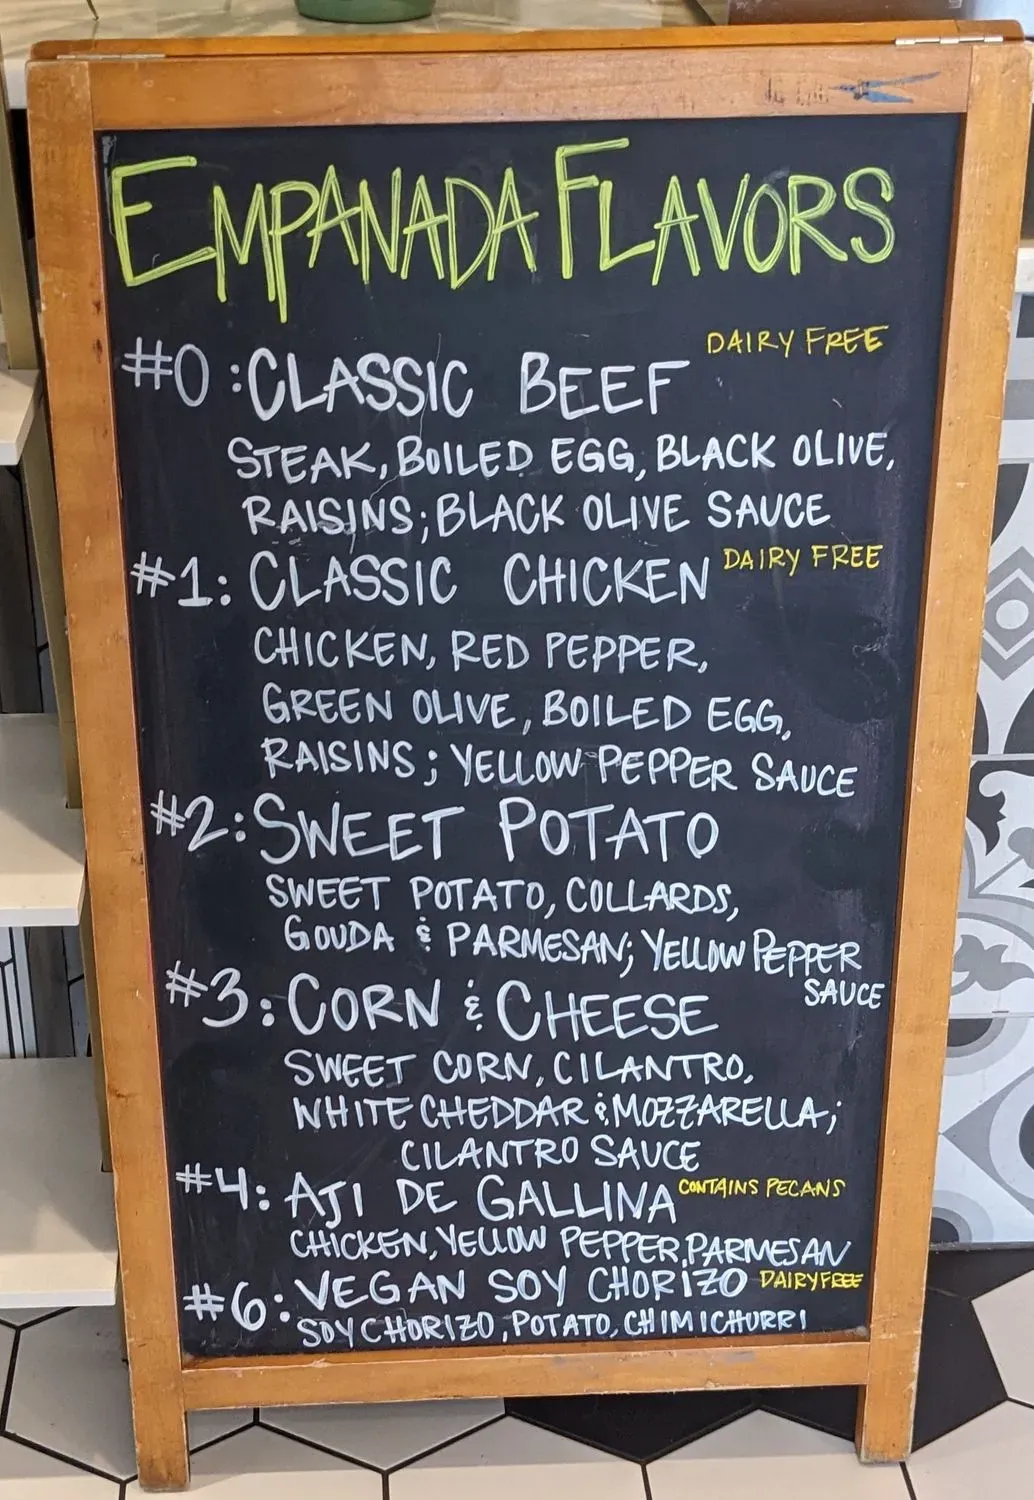 EMPANADA FLAVORS
DAIRY FREE
#0: CLASSIC BEEF
STEAK, BOILED EGG, BLACK OLIVE,
RAISINS; BLACK OLIVE SAUCE
#1: CLASSIC CHICKEN DAIRY FREE
CHICKEN, RED PEPPER,
GREEN OLIVE, BOILED EGG,
RAISINS; YELLOW PEPPER SAUCE
#2: SWEET POTATO
SWEET POTATO, COLLARDS,
GOUDA & PARMESAN; YELLOW PEPPER
SAUCE
#3: CORN & CHEESE
SWEET CORN, CILANTRO,
WHITE CHEDDAR & MOZZARELLA;
CILANTRO SAUCE
#4: AJI DE GALLINA CONTAINS PECANS
CHICKEN, YELLOW PEPPER, PARMESAN
#6: VEGAN SOY CHORIZO DAIRY FREE
SOY CHORIZO, POTATO, CHIMICHURRI